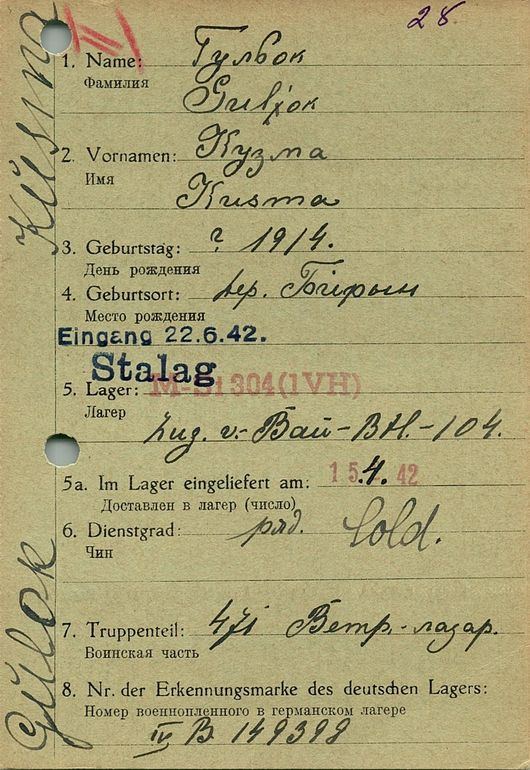 28.
1. Name: Гульок
Фамилия
Guljok
2. Vornamen: Кузма
Имя
Kusma
3. Geburtstag: ? 1914.
День рождения
4. Geburtsort: дер.
Место рождения
Eingang 22.6.42.
Stalag
5. Lager: M-St 304(IVH)
Лагер
Zug. v. Bau-Btl.-104.
5a. Im Lager eingeliefert am: 15.4.42
Доставлен в лагер (число)
6. Dienstgrad: ряд. Sold.
Чин
7. Truppenteil: 471 Ветр.-лазар.
Воинская часть
8. Nr. der Erkennungsmarke des deutschen Lagers:
Номер военнопленного в германском лагере
IV B 149398
Gülok Küsma